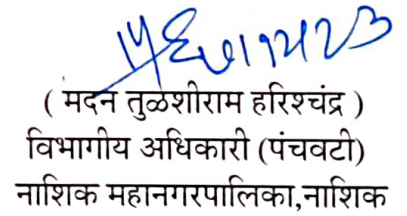 ( मदन तुळशीराम हरिश्चंद्र )
विभागीय अधिकारी (पंचवटी)
नाशिक महानगरपालिका,नाशिक